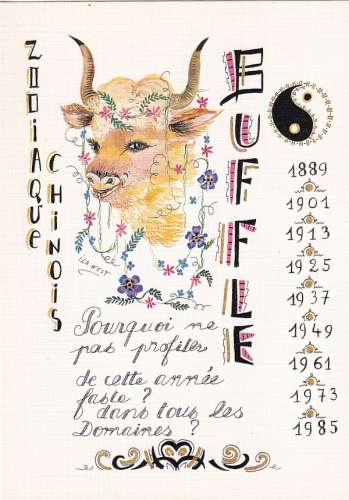 ZODIAQUE
CHINOIS
BUFFLE
1889
1901
1913
1925
1937
1949
1961
1973
1985
Pourquoi ne
pas profiter
de cette année
faste ?
dans tous les
Domaines ?